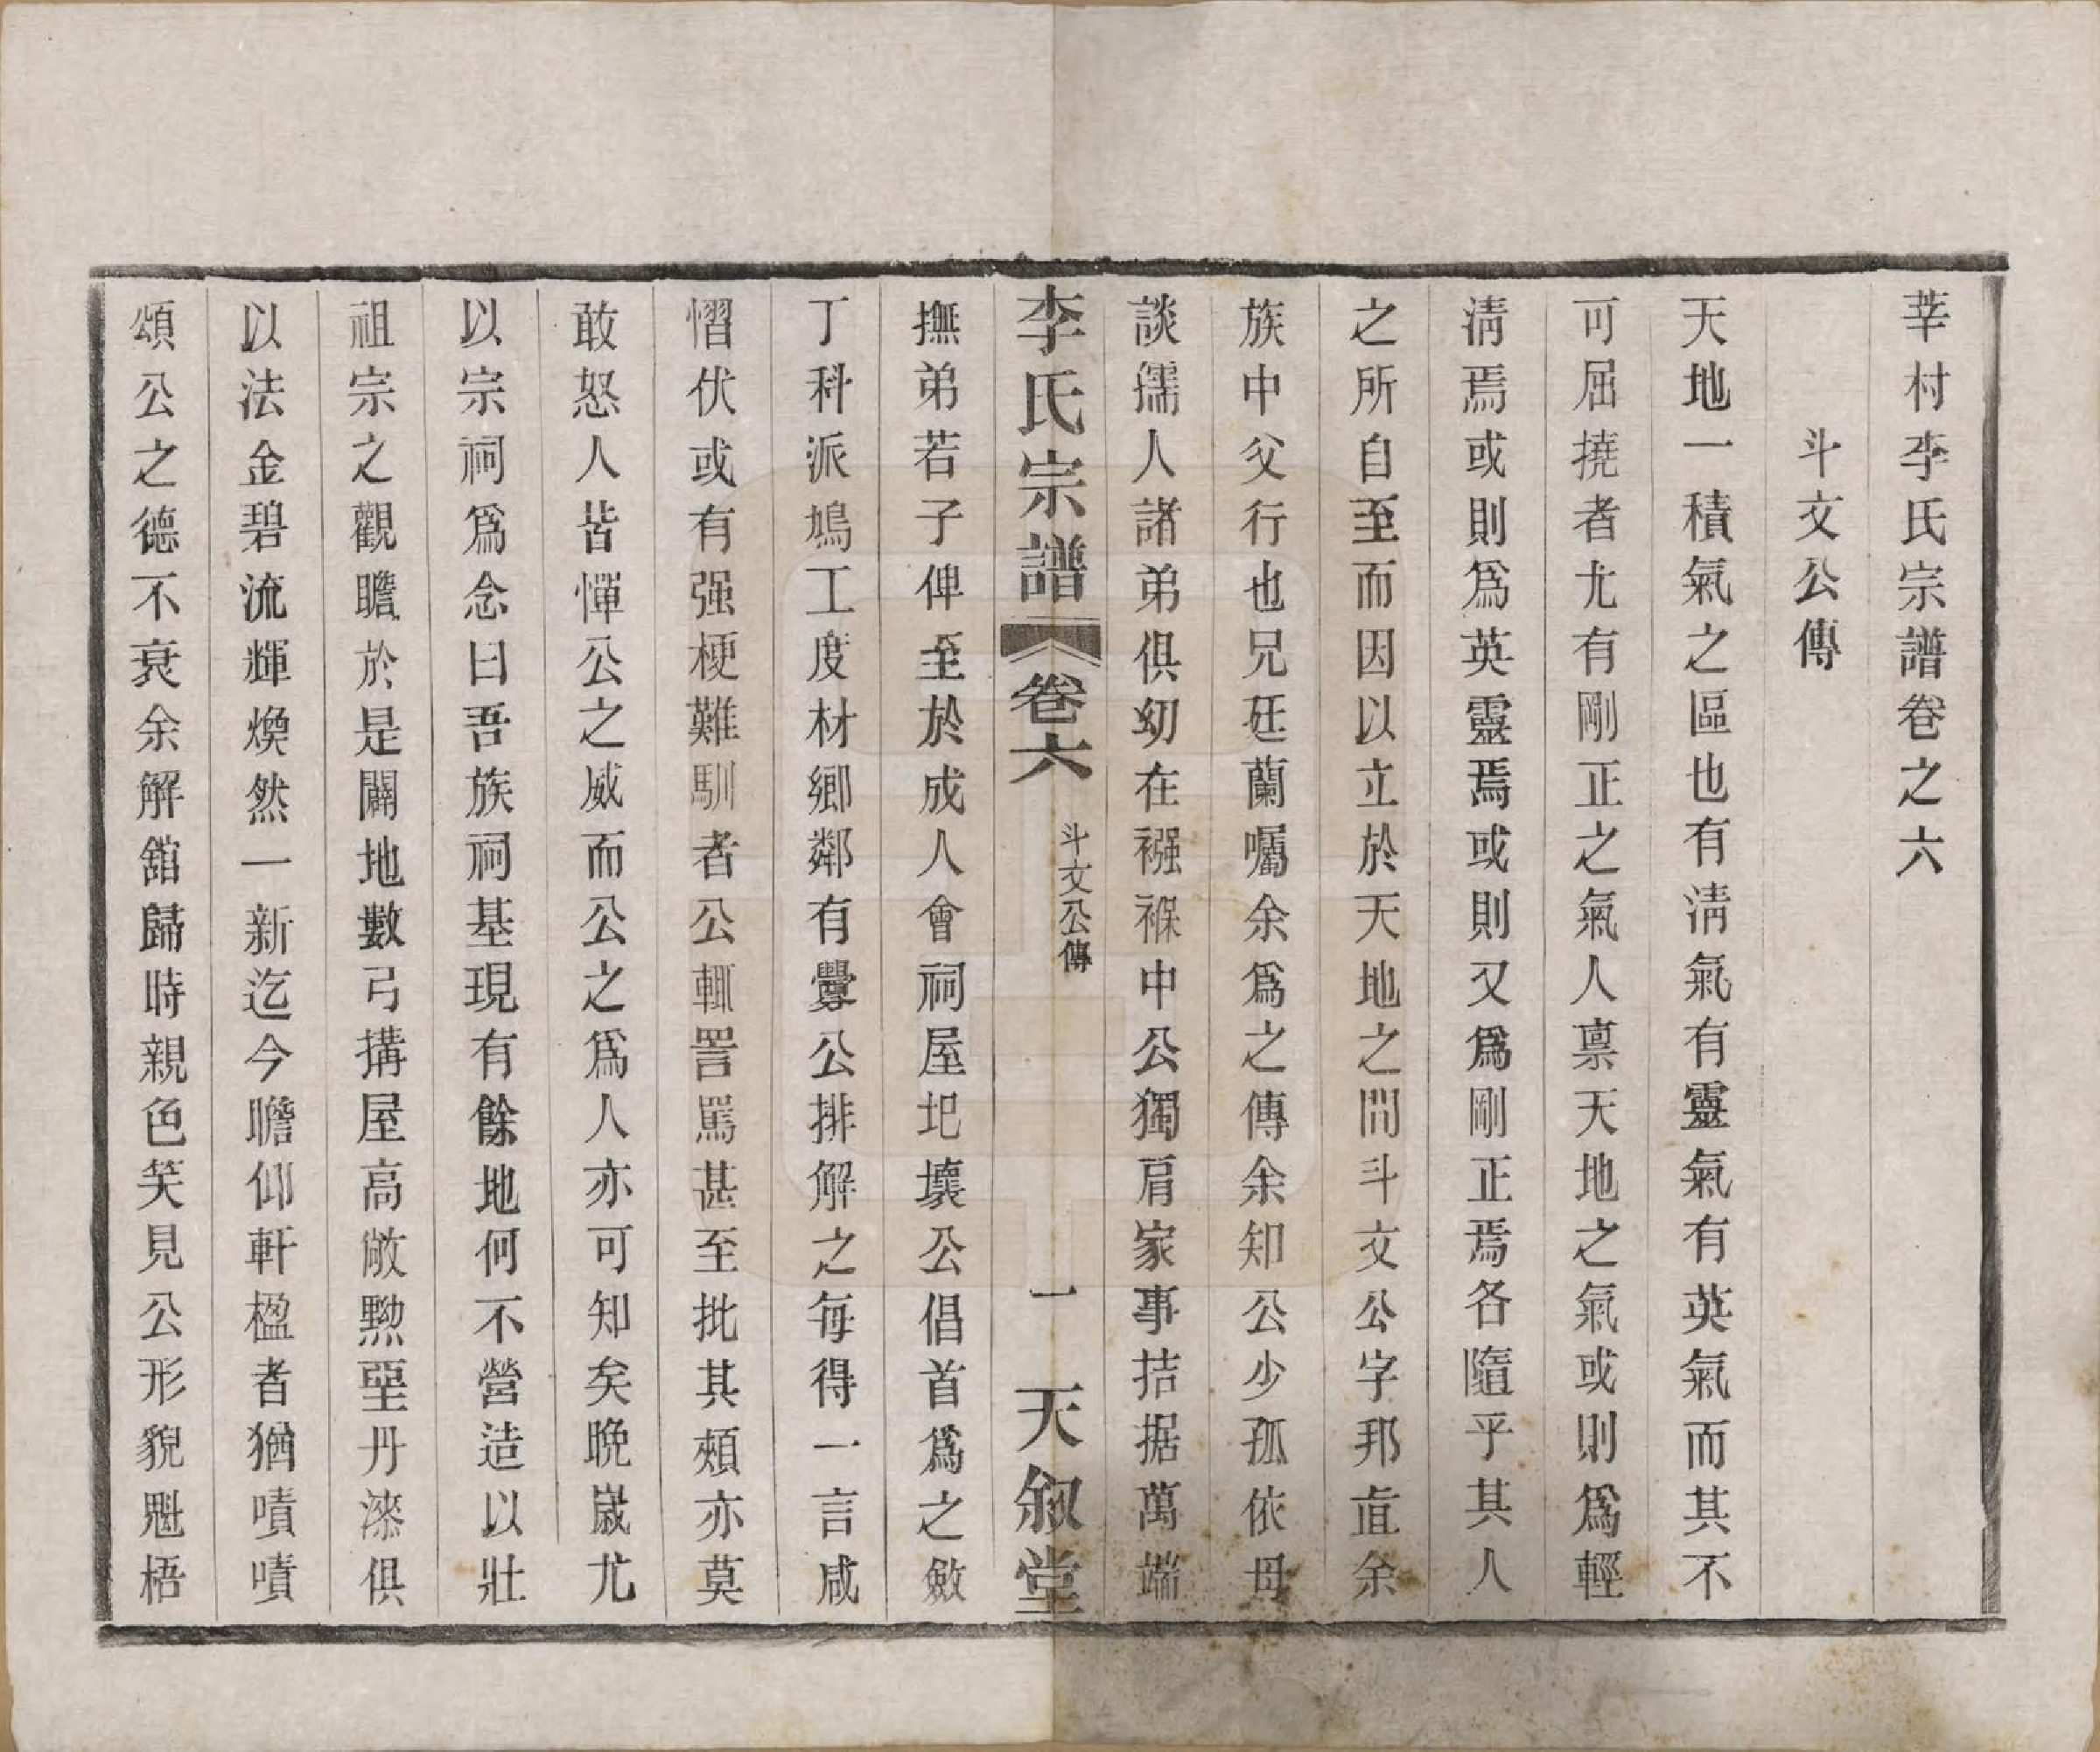 莘村李氏宗譜卷之六
斗文公傳
天地一積氣之區也有淸氣有靈氣有英氣而其不
可屈撓者尤有剛正之氣人禀天地之氣或則爲輕
淸焉或則爲英靈焉或則又爲剛正焉各隨乎其人
之所自至而因以立於天地之間斗文公字邦直余
族中父行也兄廷蘭囑余爲之傳余知公少孤依母
談孺人諸弟俱幼在襁褓中公獨肩家事拮据萬端
李氏宗譜 卷六 斗文公傳 一 天叙堂
撫弟若子俾至於成人會祠屋圯壞公倡首爲之斂
丁科派鳩工度材鄉鄰有釁公排解之每得一言咸
慴伏或有强梗難馴者公輒詈罵甚至批其頰亦莫
敢怒人皆憚公之威而公之爲人亦可知矣晚歲尤
以宗祠爲念曰吾族祠基現有餘地何不營造以壯
祖宗之觀瞻於是闢地數弓搆屋高敞黝堊丹漆俱
以法金碧流輝煥然一新迄今瞻仰軒楹者猶嘖嘖
頌公之德不衰余解舘歸時親色笑見公形貌魁梧